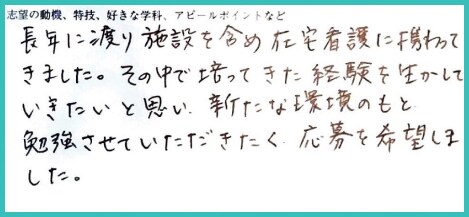 志望の動機、特技、好きな学科、アピールポイントなど
長年に渡り施設を含め在宅看護に携わって
きました。その中で培ってきた経験を生かして
いきたいと思い、新たな環境のもと
勉強させていただきたく、応募を希望しま
した。